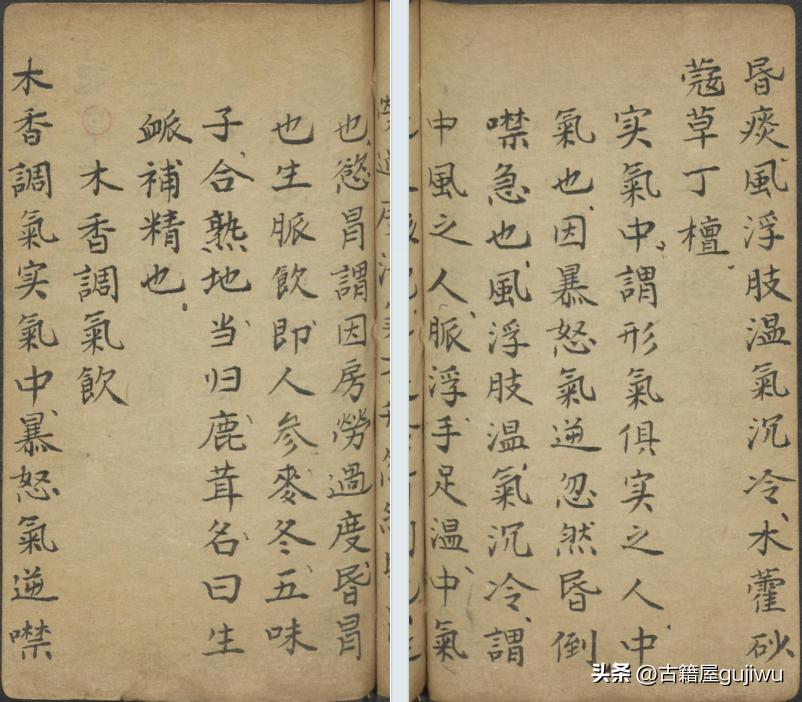 也慾冒謂因房勞過度昏冒
也生脈飲即人参麥冬五味
子合熟地当归鹿茸名曰生
脈補精也
木香調氣飲
木香調氣实氣中暴怒氣逆噤
昏痰風浮肢温氣沉冷木藿砂
蔻草丁檀
实氣中謂形氣俱实之人中
氣也因暴怒氣逆忽然昏倒
噤急也風浮肢温氣沉冷謂
中風之人脈浮手足温中氣
头条 @古籍屋gujiwu